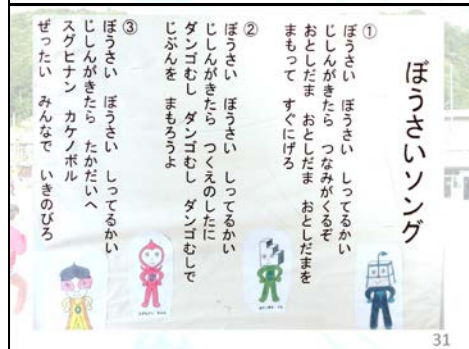 ぼうさいソング
①
ぼうさい ぼうさい しってるかい
じしんがきたら つなみがくるぞ
おとしだま おとしだま おとしだまを
まもって すぐにげろ
②
ぼうさい ぼうさい しってるかい
じしんがきたら つくえのしたに
ダンゴむし ダンゴむし ダンゴむしで
じぶんを まもろうよ
③
ぼうさい ぼうさい しってるかい
じしんがきたら たかだいへ
スグヒナン カケノボル
ぜったい みんなで いきのびろ
31